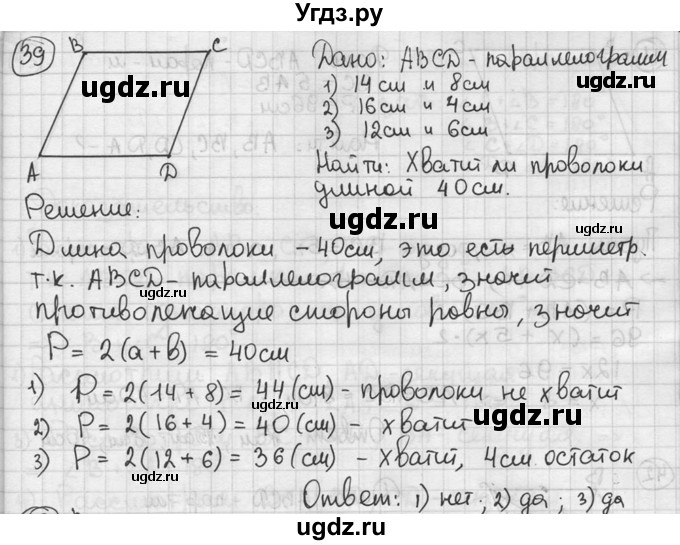 Угдз.ру
39
B C
ugdz.ru
A D
Дано: ABCD - параллелограмм
1) 14 см и 8 см
2) 16 см и 4 см
3) 12 см и 6 см
ugdz.ru
Найти: Хватит ли проволоки
длиной 40 см.
ugdz.ru
Решение:
Длина проволоки - 40 см, это есть периметр.
т.к. ABCD - параллелограмм, значит
ugdz.ru
ugdz.ru
противолежащие стороны ровны, значит
P = 2(a+b) = 40 см
1) P = 2(14 + 8) = 44 (см) - проволоки не хватит
ugdz.ru
ugdz.ru
2) P = 2(16 + 4) = 40 (см) - хватит
3) P = 2(12 + 6) = 36 (см) - хватит, 4 см остаток
Ответ: 1) нет; 2) да; 3) да
ugdz.ru
ugdz.ru